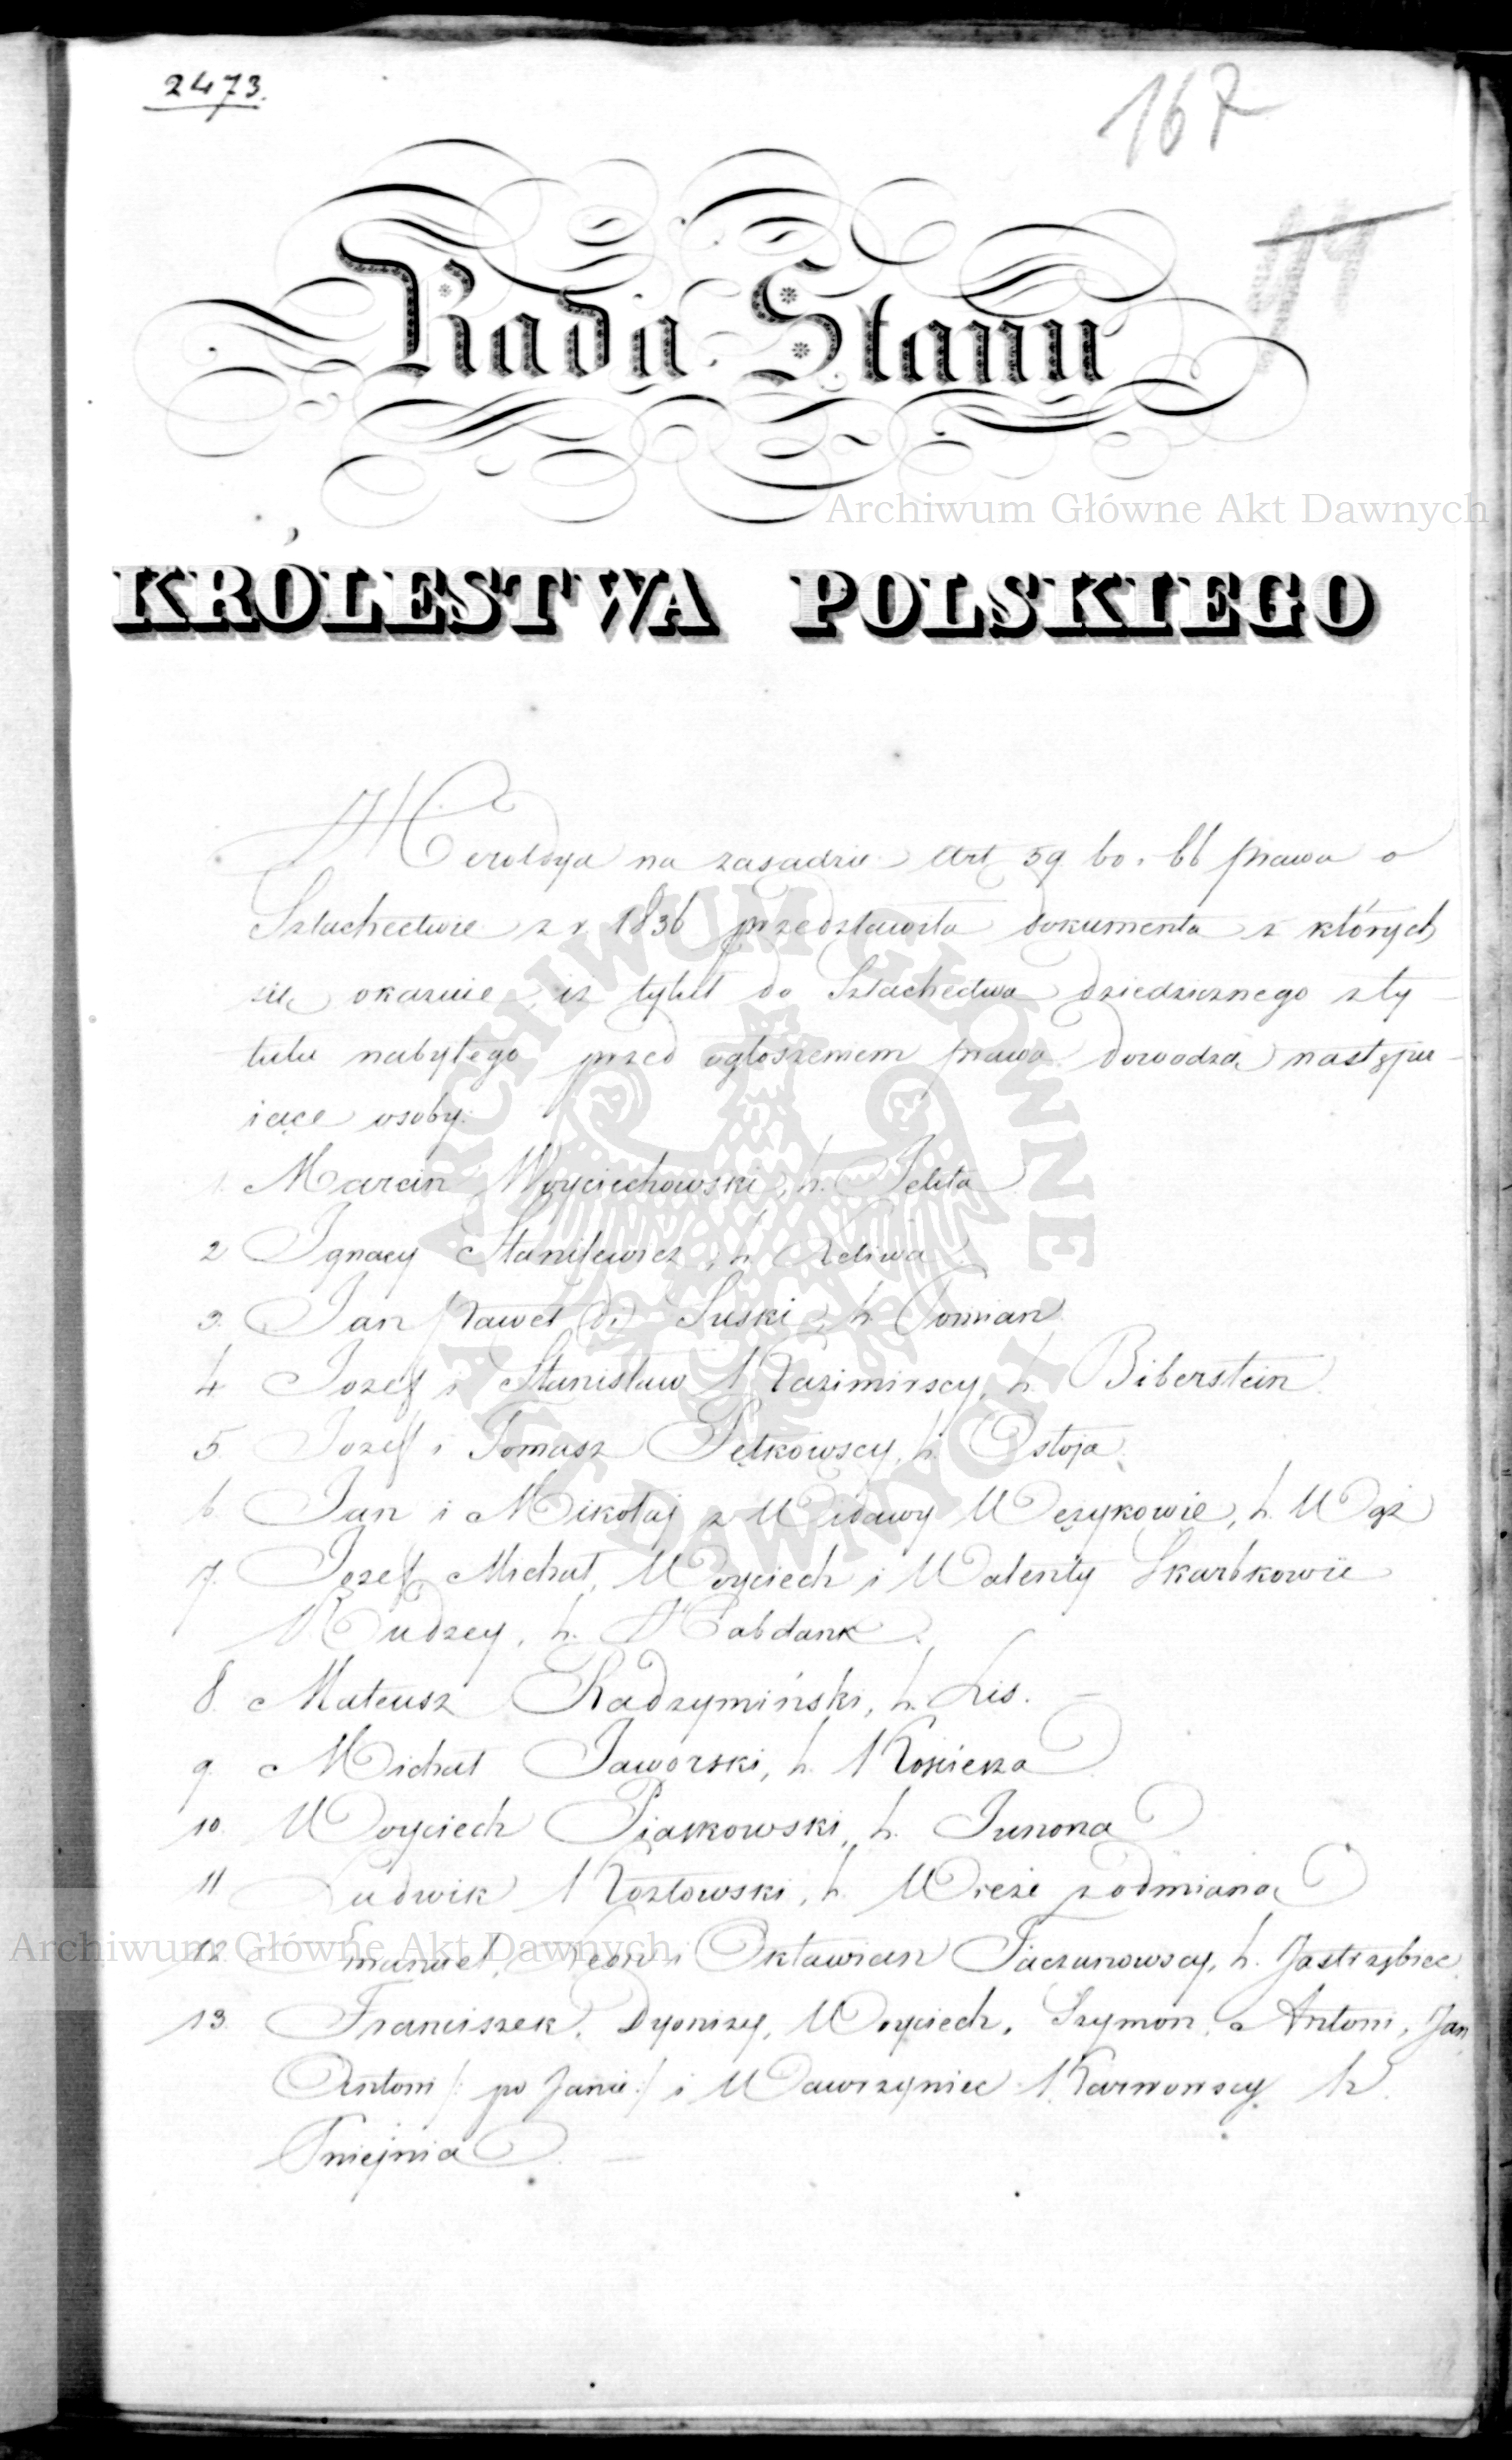 2473.
167
Rada Stanu
Archiwum Główne Akt Dawnych
KRÓLESTWA POLSKIEGO
Heroldya na zasadzie Art 59 60. 66 prawa o
Szlachectwie z r. 1836 przedstawiła dokumenta z których
się okazuie iż tytuł do Szlachectwa dziedzicznego z ty-
tułu nabytego przed ogłoszeniem prawa dowodzą następu-
iące osoby:
1. Marcin Woyciechowski, h. Jelita
2 Ignacy Stanilewicz, h. Leliwa
3. Jan Paweł d. Suski, h. Pomian
4 Jozef i Stanisław Kazimirscy, h. Biberstein
5 Jozef i Tomasz Pętkowscy, h. Ostoja
6 Jan i Mikołaj z Widawy Wężykowie, h. Wąż
7. Jozef, Michał, Woyciech i Walenty Skarbkowie
Rudzcy, h. Habdank
8. Mateusz Radzymiński, h. Lis. -
9. Michał Jaworski, h. Kościesza
10. Woyciech Piaskowski, h. Junona
11 Ludwik Kozłowski, h. Wieże z odmianą
12 Emanuel, i Oktawian Taczanowscy, h. Jastrzębiec
Archiwum Główne Akt Dawnych
13. Franciszek, Dyonizy, Woyciech, Szymon, Antoni, Jan
Antoni /: po Janie :/ i Wawrzyniec Karwowscy h.
Pniejnia -
ARCHIWUM GŁÓWNE AKT DAWNYCH